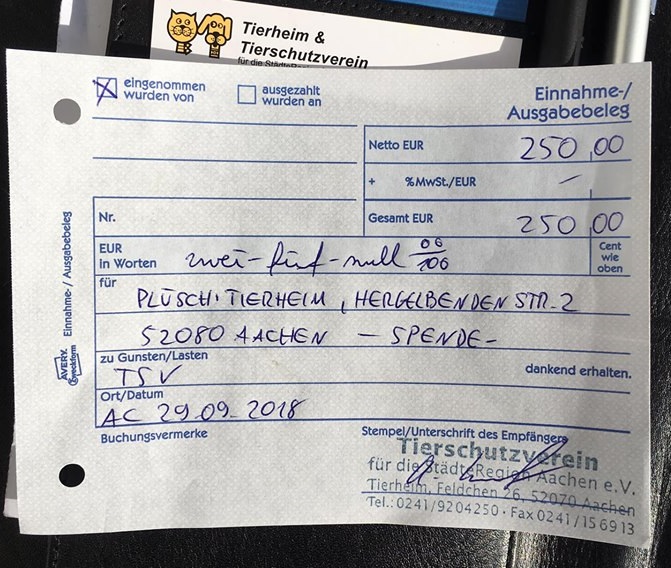 Tierheim &
Tierschutzverein
für die StädteRe
eingenommen
wurden von
ausgezahlt
wurden an
Einnahme-/
Ausgabebeleg
Netto EUR 250,00
+ %MwSt./EUR —
Nr.
Gesamt EUR 250,00
EUR
in Worten zwei-fünf-null 00/100
Cent
wie
oben
für
PLÜSCH-TIERHEIM, HERGELBENDENSTR. 2
52080 AACHEN — SPENDE-
zu Gunsten/Lasten
TSV
dankend erhalten.
Ort/Datum
AC 29.09.2018
Buchungsvermerke
Stempel/Unterschrift des Empfängers
Tierschutzverein
für die StädteRegion Aachen e.V.
Tierheim, Feldchen 26, 52070 Aachen
Tel.: 0241/9204250 · Fax 0241/156913
AVERY
Zweckform
Einnahme-/Ausgabebeleg